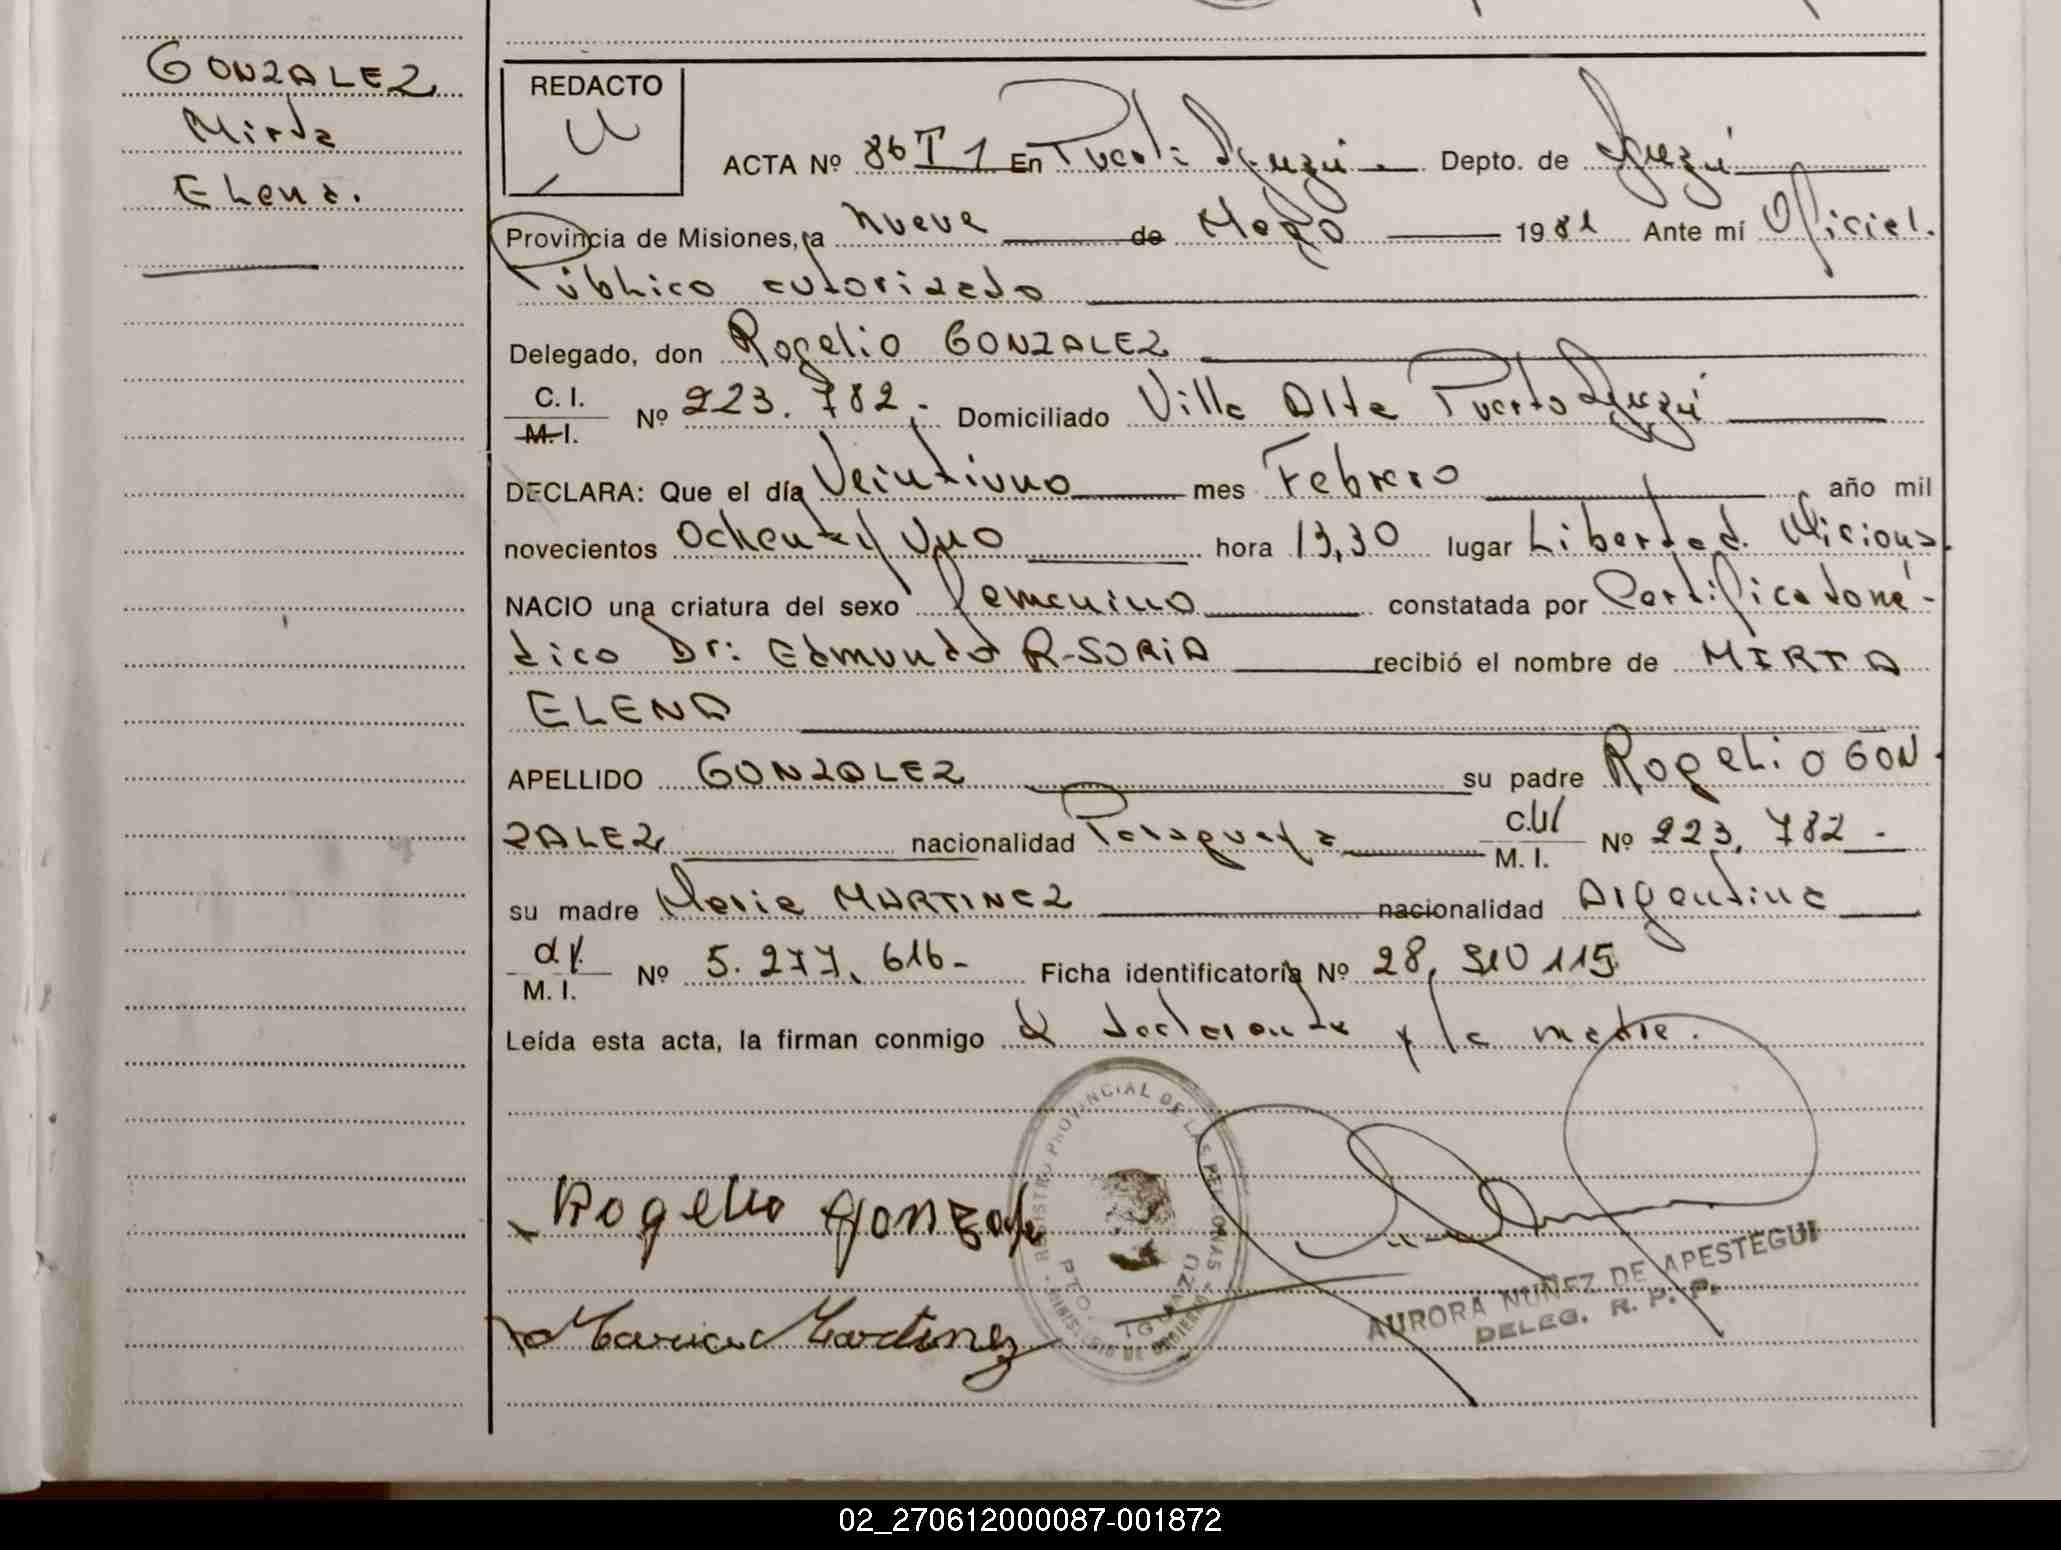 GONZALEZ
Mirta
Elena.
REDACTO
ACTA Nº 86 T 1 En Puerto Iguazú Depto. de Iguazú
Provincia de Misiones, a nueve de Mayo 1981 Ante mí Oficial.
Público autorizado
Delegado, don Rogelio GONZALEZ
C. I.
M. I. Nº 223.782.- Domiciliado Villa Alta Puerto Iguazú
DECLARA: Que el día Veintiuno mes Febrero año mil
novecientos Ochenta y Uno hora 13,30 lugar Libertad. Misiones.
NACIO una criatura del sexo femenino constatada por Certificado mé-
dico Dr: Edmundo R-SORIA recibió el nombre de MIRTA
ELENA
APELLIDO GONZALEZ su padre Rogelio GON
ZALEZ nacionalidad Paraguaya M. I. Nº 223.782-
su madre Maria MARTINEZ nacionalidad Argentina
M. I. Nº 5.277.616- Ficha identificatoria Nº 28.310115
Leída esta acta, la firman conmigo el declarante y la madre.
REGISTRO PROVINCIAL DE LAS PERSONAS
PTO. IGUAZU
MINISTERIO DE GOBIERNO
Rogelio Gonzale
AURORA NUÑEZ DE APESTEGUI
DELEG. R. P. P.
Maria Martinez
02_270612000087-001872